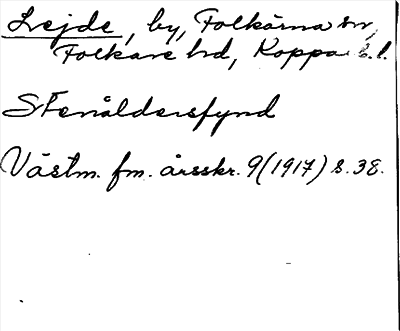 Lejde, by, Folkärna sn,
Folkare hd, Koppa b.l.
Stenåldersfynd
Västm. fm. årsskr. 9 (1917) s. 38.